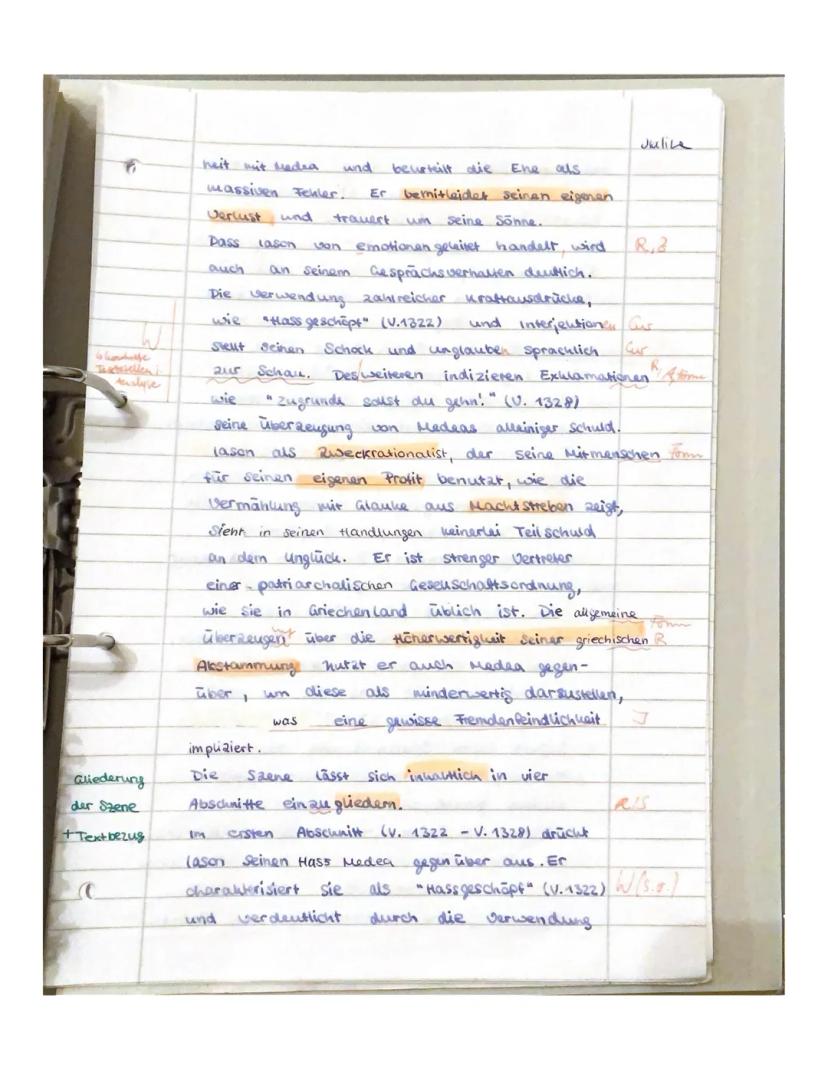 heit mit Medea und beurteilt die Ehe als
massiven Fehler. Er bemitleidet seinen eigenen
Verlust und trauert um seine Söhne.
Dass Iason von emotionen geleitet handelt, wird R, Z
auch an seinem Gesprächsverhalten deutlich.
Die Verwendung zahlreicher Kraftausdrücke,
wie "Hassgeschöpf" (V.1322) und Interjektionen Gr
W stellt seinen Schock und unglauben sprachlich Gr
Textstellen i. Analyse
zur Schau. Des weiteren indizieren Exklamationen R,
wie "zugrunde sollst du gehn!" (V. 1328)
seine Überzeugung von Medeas alleiniger Schuld.
Iason als Zweckrationalist, der seine Mitmenschen Form
für seinen eigenen Profit benutzt, wie die
Vermählung mit Glauke aus Machtstreben zeigt,
sieht in seinen Handlungen keinerlei Teilschuld
an dem Unglück. Er ist strenger Vertreter
einer patriarchalischen Gesellschaftsordnung,
wie sie in Griechenland üblich ist. Die allgemeine Form
Überzeugent über die Höherwertigkeit seiner griechischen R
Abstammung nutzt er auch Medea gegen-
über, um diese als minderwertig darzustellen,
was eine gewisse Fremdenfeindlichkeit I
impliziert.
Gliederung Die Szene lässt sich inhaltlich in vier
der Szene Abschnitte einzugliedern. R/S
+ Textbezug Im ersten Abschnitt (V. 1322 - V. 1328) drückt
Iason seinen Hass Medea gegenüber aus. Er
charakterisiert sie als "Hassgeschöpf" (V.1322) W (s.o.)
und verdeutlicht durch die Verwendung